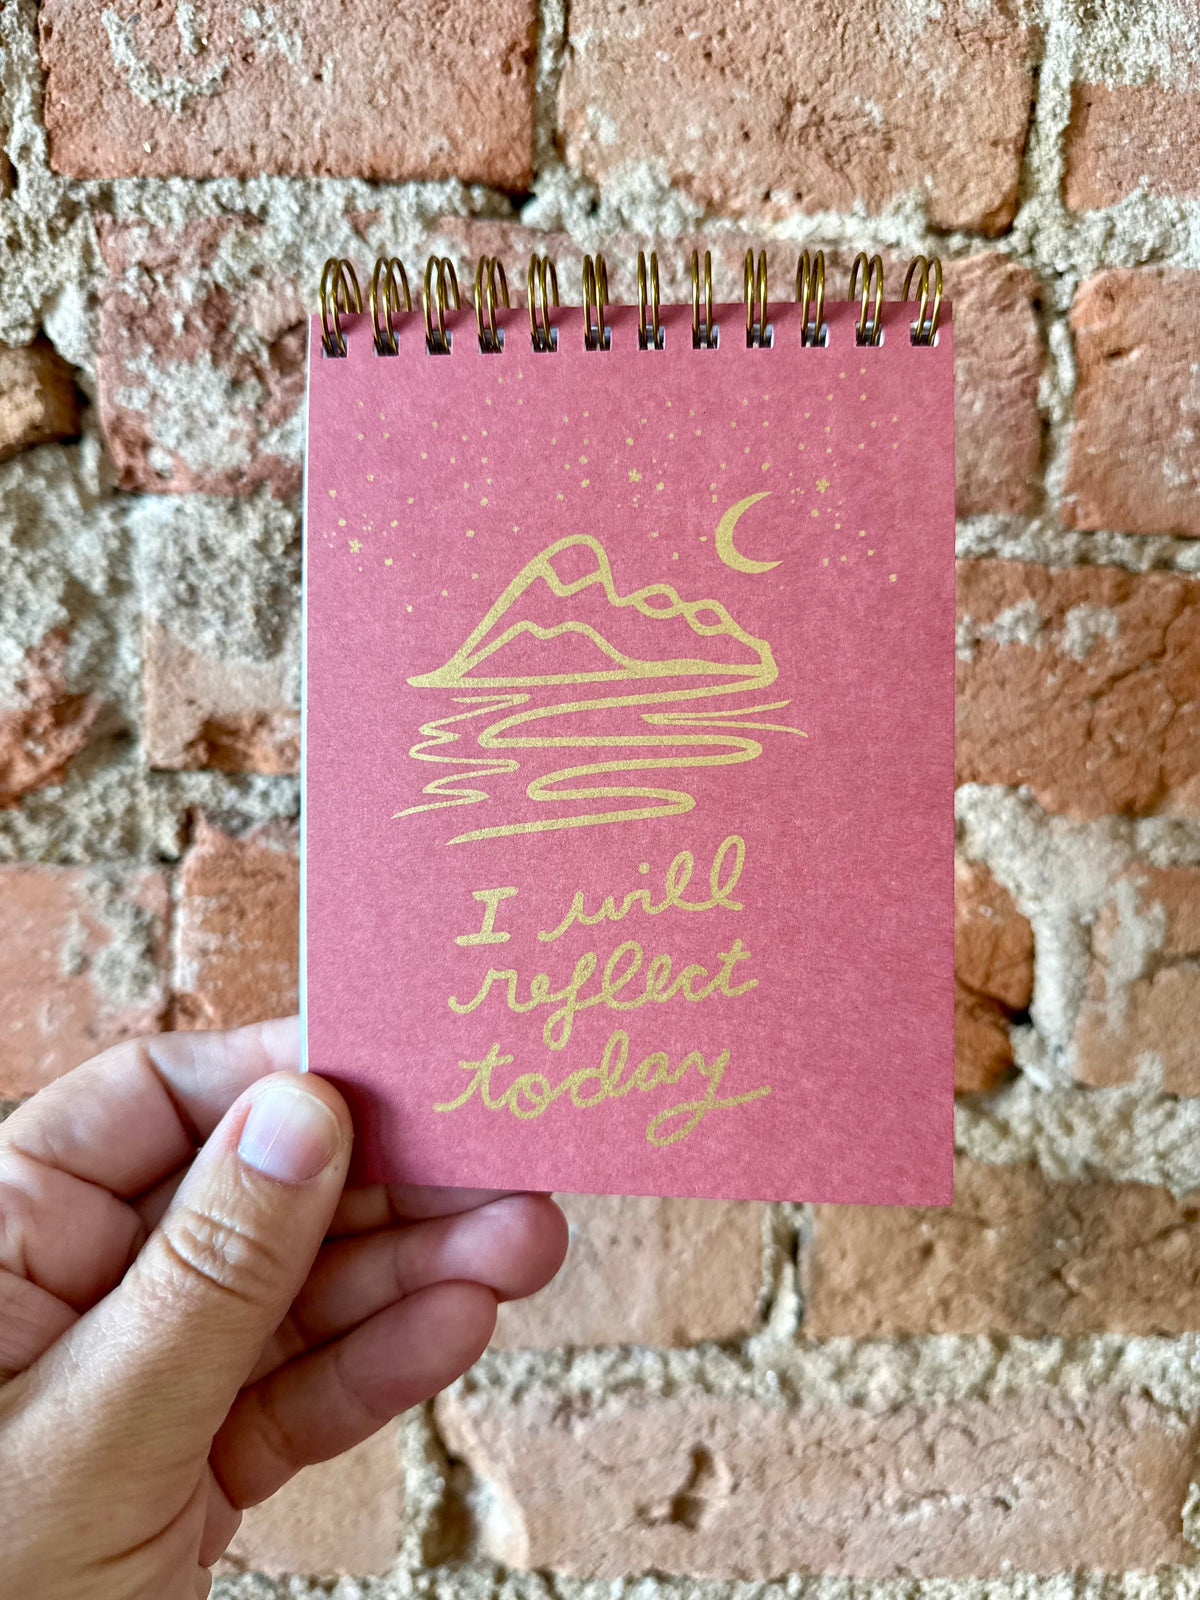 I will
reflect
today